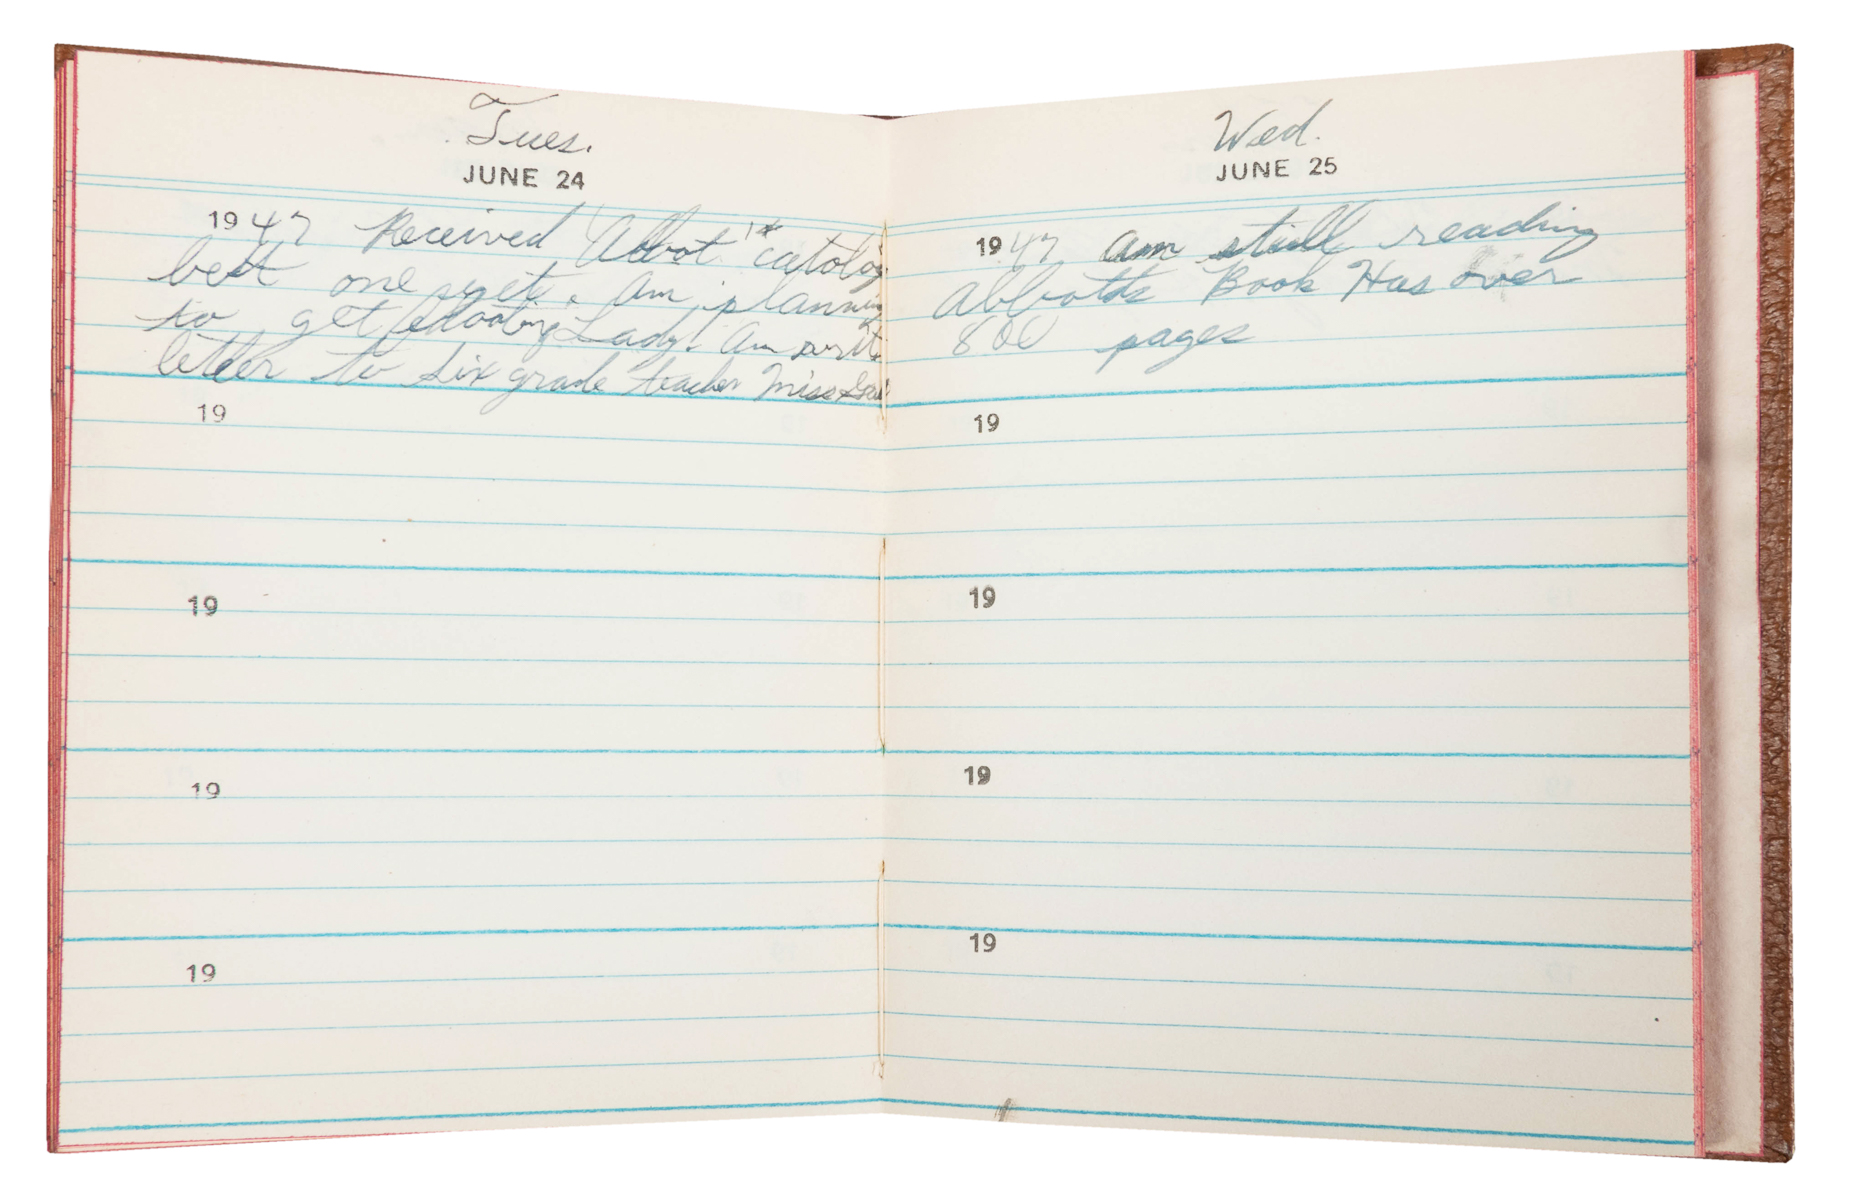 Tues.
JUNE 24
1947 Received Abbot catolog
best one yet. Am planning
to get floating Lady. Am
letter to six grade teacher Miss
19
19
19
19
Wed.
JUNE 25
1947 am still reading
Abbotts Book Has over
800 pages
19
19
19
19